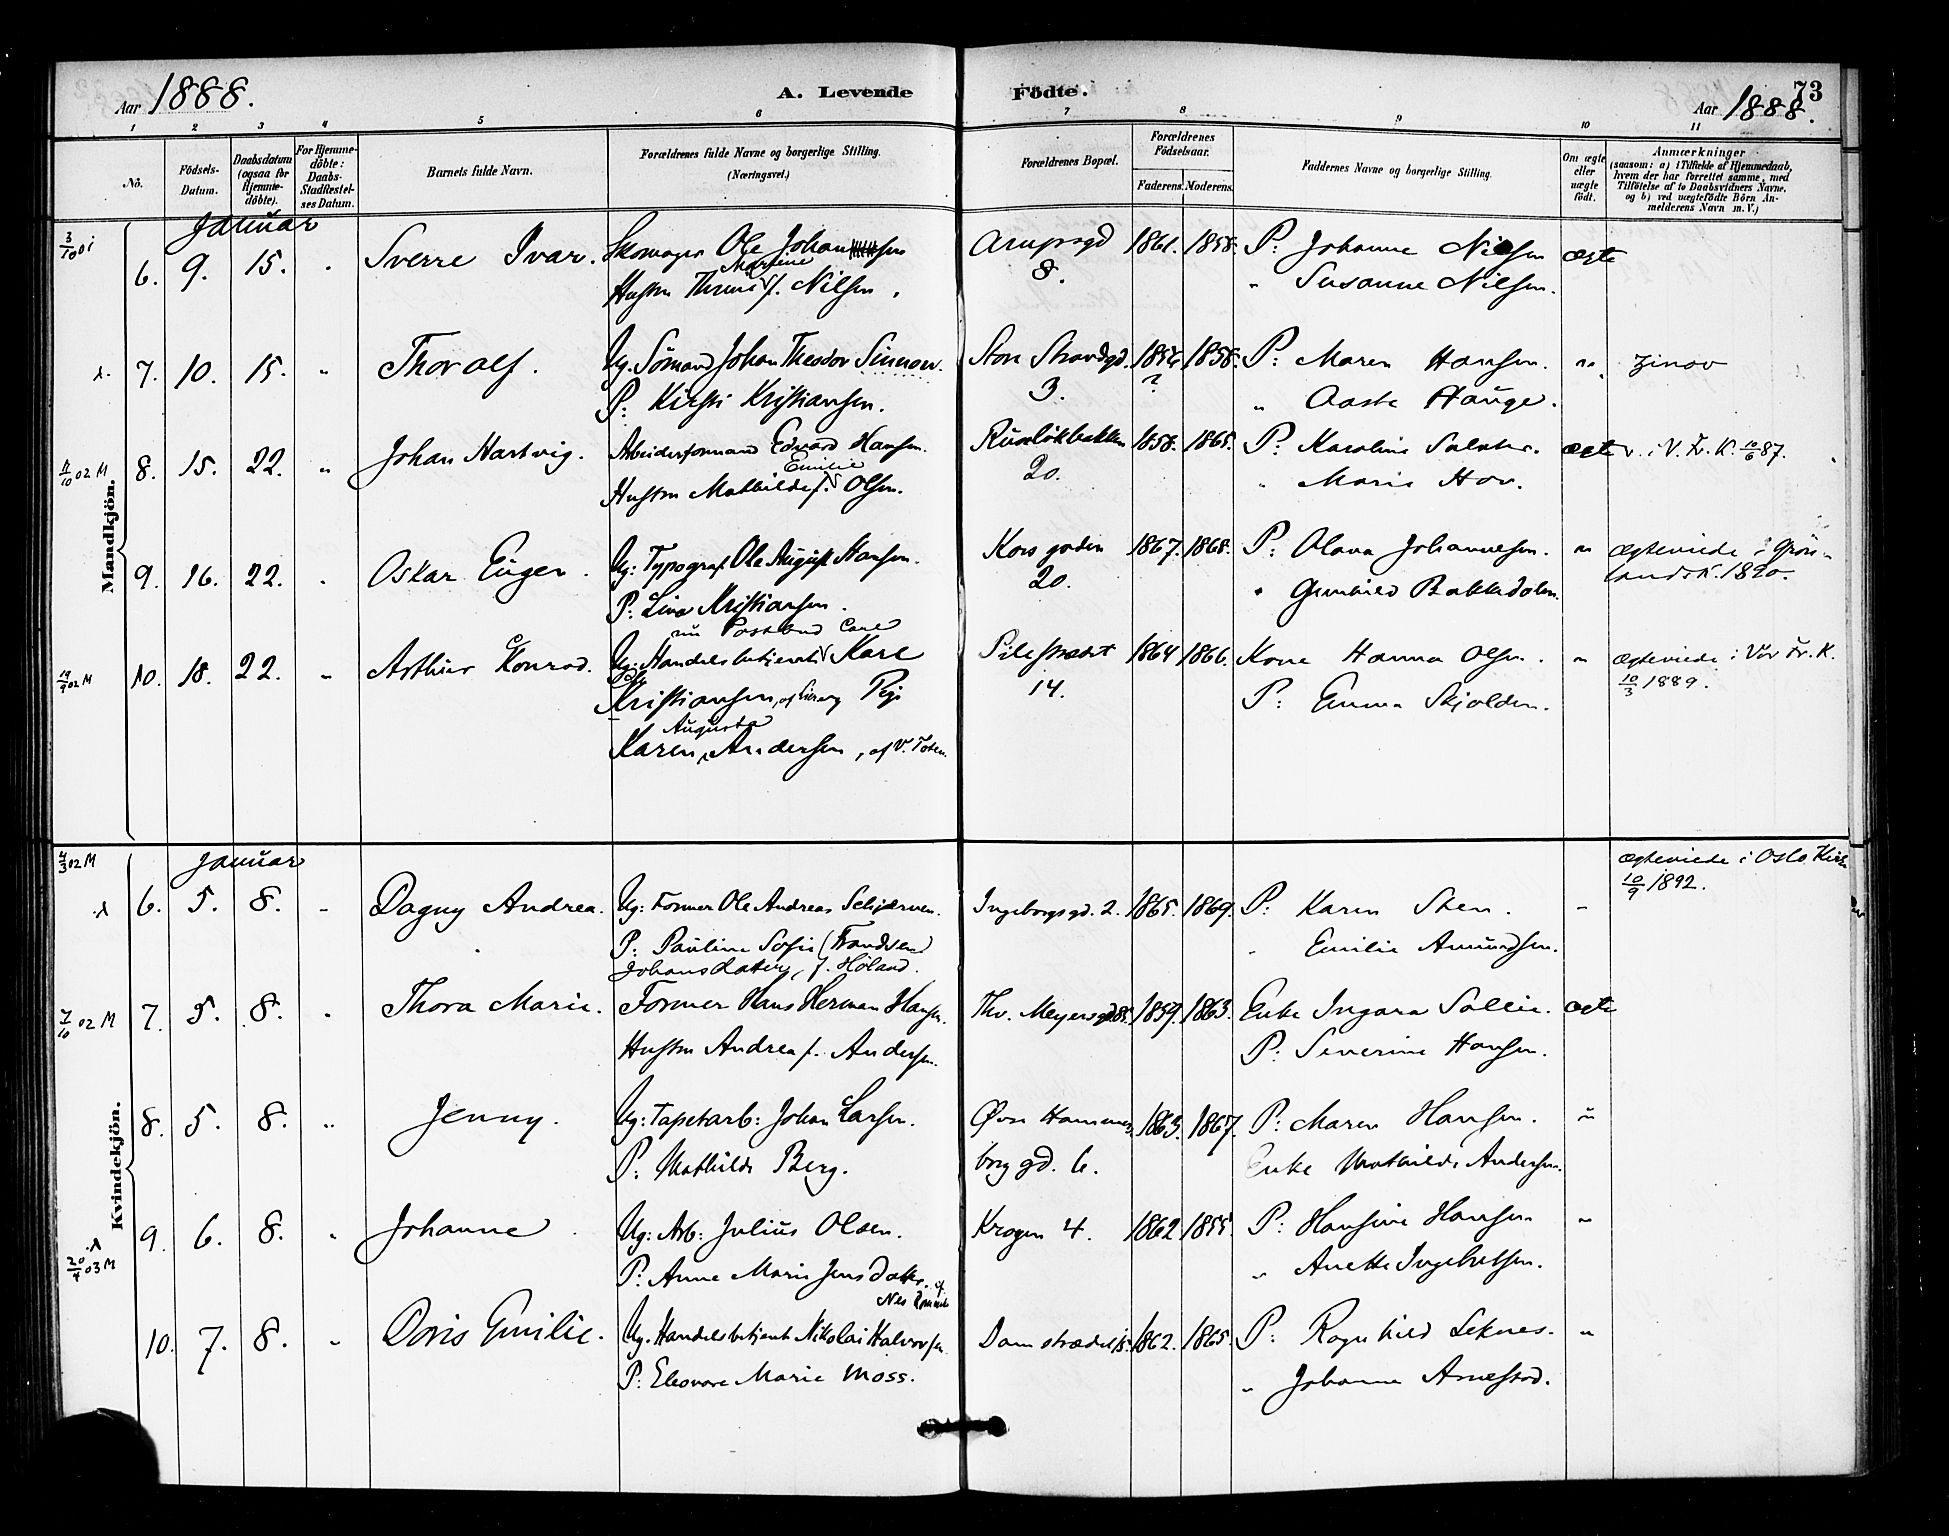 Aar 1888. A. Levende Födte. 73
Aar 1888.
1 2 3 4 5 6 7 8 9 10 11
No. Födsels-Datum. Daabsdatum (ogsaa for Hjemme-döbte). For Hjemme-döbte: Daabs-Stadfæstel-ses Datum. Barnets fulde Navn. Forældrenes fulde Navne og borgerlige Stilling. (Næringsvei.) Forældrenes Bopæl. Forældrenes Födselsaar. Faderens. Moderens. Faddernes Navne og borgerlige Stilling. Om ægte eller uægte födt. Anmærkninger (saasom: a) i Tilfælde af Hjemmedaab, hvem der har forrettet samme, med Tilföielse af to Daabsvidners Navne. og b) ved uægtefödte Börn An-melderens Navn m. V.)
Mandkjön.
Januar
6. 9. 15. Sverre Ivar. Skomager Ole Johansen Arupsgd 1861. 1858. P: Johanne Nilsen ægte
Martine
Hustru f. Nilsen. 8. " Susanne Nilsen.
7. 10. 15. " Thoralf. Ug. Sömand Johan Theodor Simmon. Store Strandgd. 1854 1858. P: Maren Hansen. " Zinov
P: Kirsti Kristiansen. 3. ? " Aaste Hauge.
11/10 02 M 8. 15. 22. " Johan Hartvig. Arbeiderformand Edvard Hansen. Ruselökbakken 1858. 1865. P: Karoline Salater. ægte v. i V. Fr. K. 10/6 87.
Emilie
Hustru Mathilde f. Olsen. 20. " Marie Hov.
9. 16. 22. Oskar Eugen. Ug: Typograf Ole August Hansen. Korsgaden 1867. 1868. P: Olava Johannesen. " ægteviede i Grön-
P: Lina Kristiansen. 20. " Gunhild Bakkedalen. lands K. 1890.
nu Postbud Carl
19/9 02 M 10. 18. 22. " Arthur Konrad. Ug: Handelsbetjent Karl Pilestrædet 1864 1866. Kone Hanna Olsen. " ægteviede i Vor Fr. K.
Kristiansen, Pige 14. P: Emma Skjolden. 10/3 1889.
Augusta
Karen Andersen, af V. Toten
Kvindekjön.
4/3 02 M Januar ægteviede i Oslo Kirke
6. 5. 8. Dagny Andrea. Ug: Former Ole Andreas Schjerven. Ingeborgsgd. 2. 1865. 1869. P: Karen Sten. " 10/9 1892.
P: Pauline Sofie (Frandsen) " Emilie Amundsen.
Johansdatter, f. Höland.
7/10 02 M 7. 5. 8. Thora Marie. Former Hans Herman Hansen. Thv. Meyersgd. 85. 1859. 1863. Enke Ingara Sollie. ægte
Hustru Andrea f. Andersen. P: Severine Hansen.
8. 5. 8. " Jenny. Ug: Tapetarb: Johan Larsen. Øvre Hammers- 1863. 1867. P: Maren Hansen. "
P: Mathilde Berg. borg gd. 6. Enke Mathilde Andersen.
9. 6. 8. Johanne Ug: Arb: Julius Olsen. Krogen 4. 1862 1855. P: Hansine Hansen "
20/4 03 M P: Anne Marie Jensdatter. af " Anette Ingebretsen.
Nes
10. 7. 8. " Doris Emilie. Ug. Handelsbetjent Nikolai Halvorsen. Damstrædet 1862. 1865. P: Ragnhild Seknes. "
P: Eleonore Marie Moss. " Johanne Arnestad.